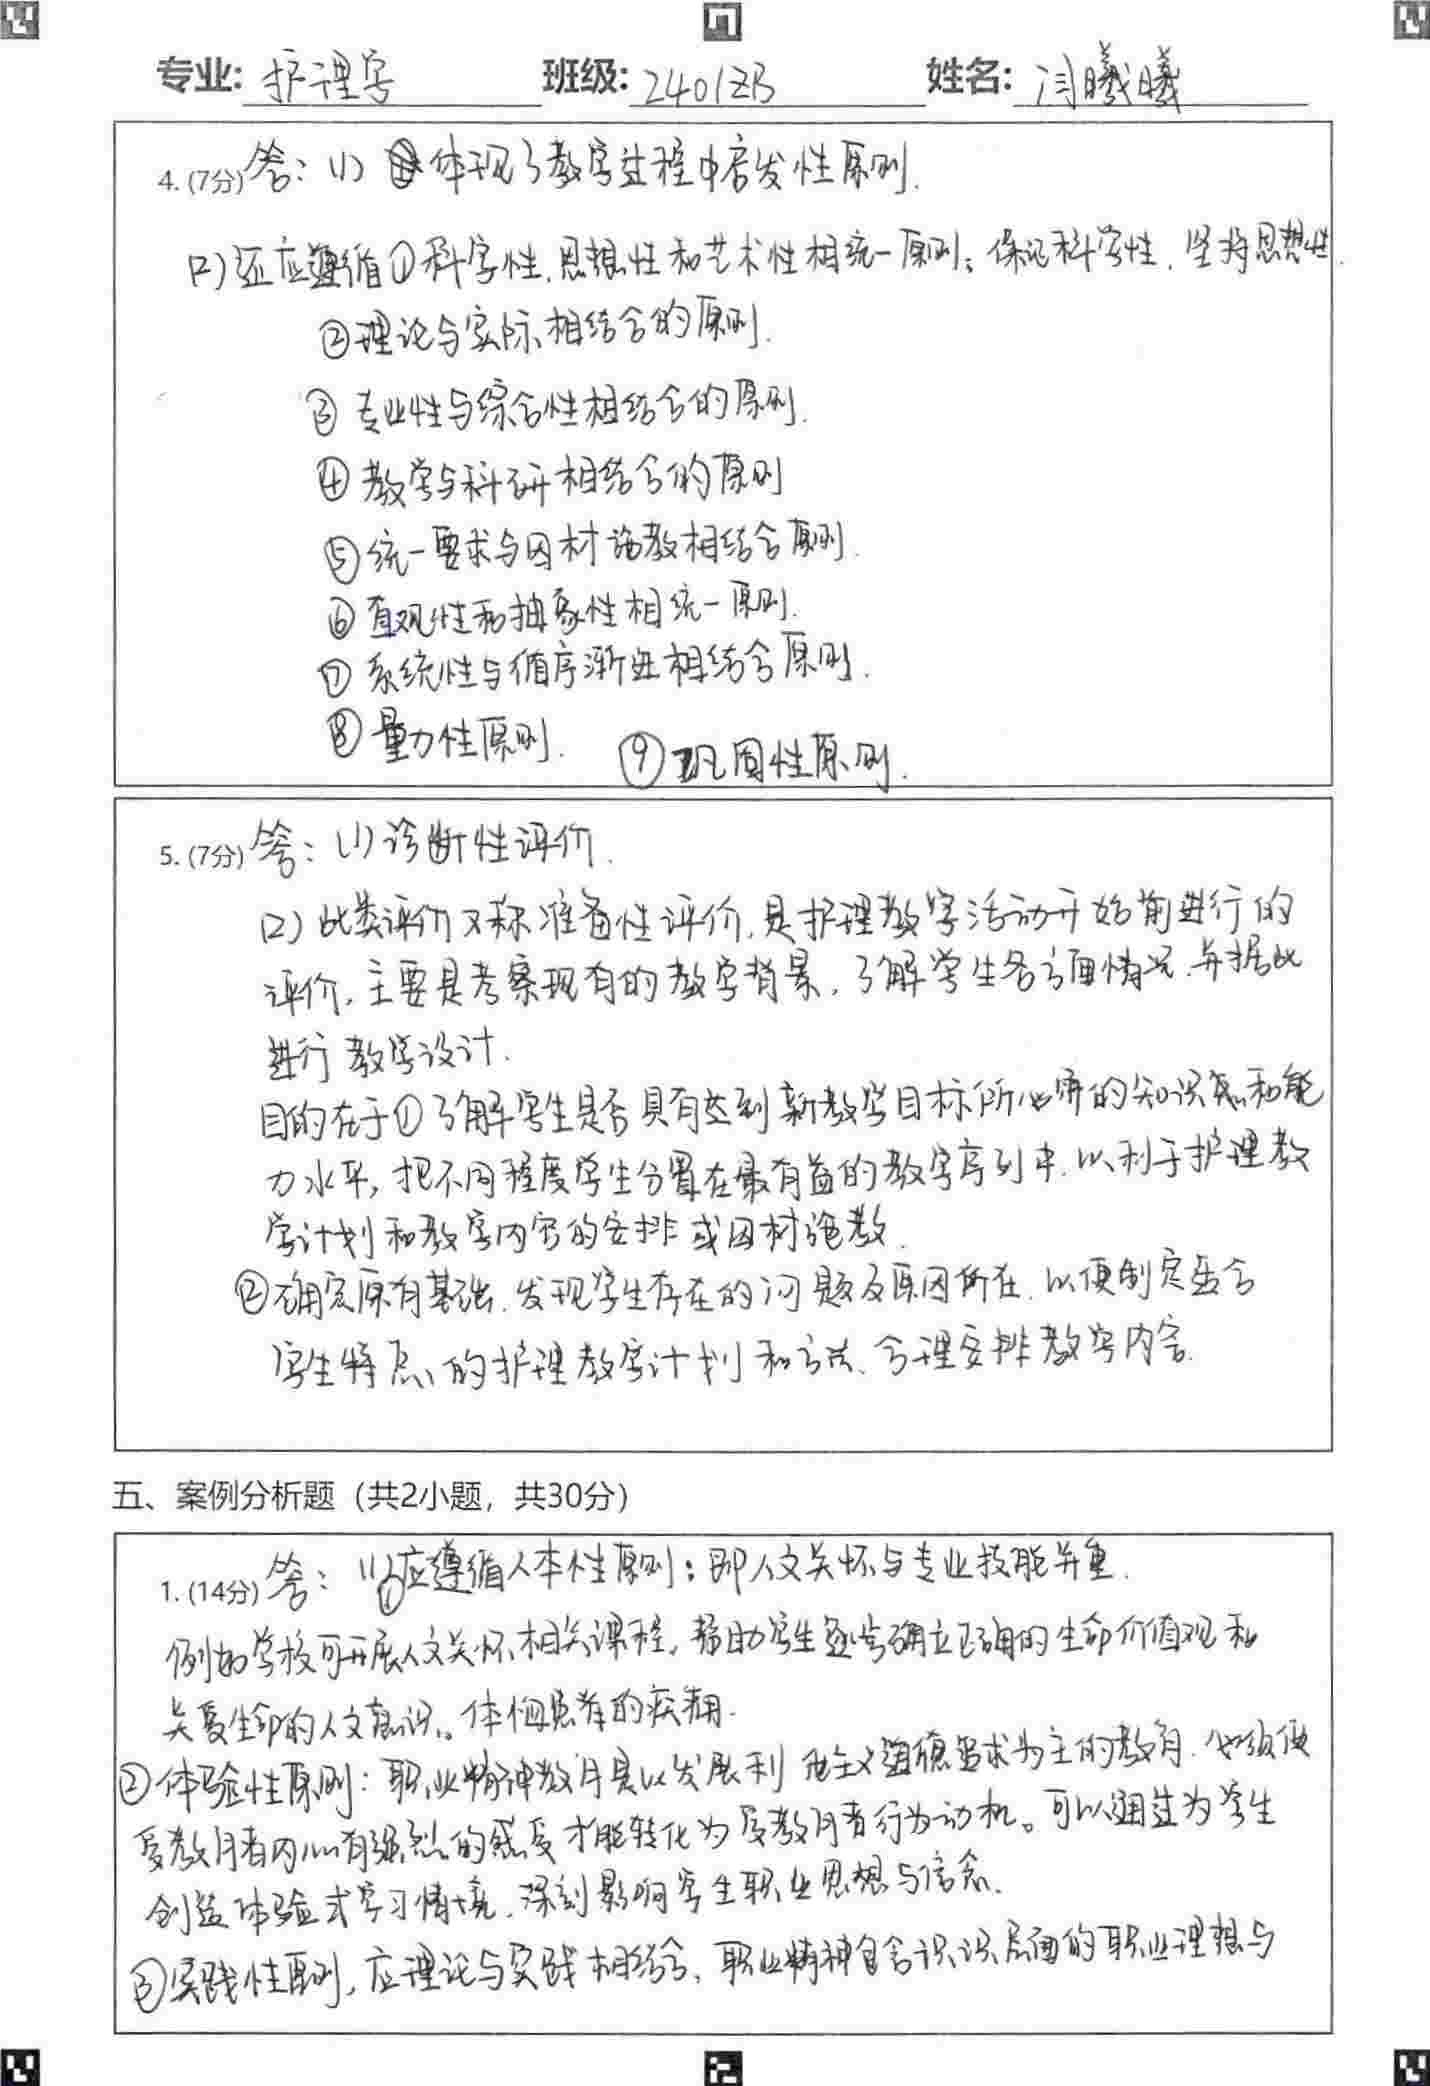 专业: 护理学 班级: 2401ZB 姓名: 闫曦曦
4. (7分) 答：(1) 体现了教学过程中启发性原则.
(2)还应遵循①科学性、思想性和艺术性相统一原则：保证科学性，坚持思想性.
②理论与实际相结合的原则.
③专业性与综合性相结合的原则.
④教学与科研相结合的原则
⑤统一要求与因材施教相结合原则.
⑥直观性和抽象性相统一原则.
⑦系统性与循序渐进相结合原则.
⑧量力性原则. ⑨巩固性原则.
5. (7分) 答：(1)诊断性评价.
(2)此类评价又称准备性评价，是护理教学活动开始前进行的
评价，主要是考察现有的教学背景，了解学生各方面情况，并据此
进行教学设计.
目的在于①了解学生是否具有达到新教学目标所必需的知识和能
力水平，把不同程度学生分置在最有益的教学序列中，以利于护理教
学计划和教学内容的安排或因材施教.
②确定原有基础，发现学生存在的问题及原因所在，以便制定适合
学生特点的护理教学计划和方法、合理安排教学内容.
五、案例分析题（共2小题，共30分）
1. (14分) 答：(1)①应遵循人本性原则：即人文关怀与专业技能并重.
例如学校可开展人文关怀相关课程，帮助学生逐步确立正确的生命价值观和
关爱生命的人文意识。体恤患者的疾痛.
②体验性原则：职业精神教育是以发展利他主义道德追求为主的教育，必须使
受教育者内心有强烈的感受才能转化为受教育者行为动机。可以通过为学生
创造体验式学习情境，深刻影响学生职业思想与信念.
③实践性原则，应理论与实践相结合，职业精神包含认识层面的职业理想与